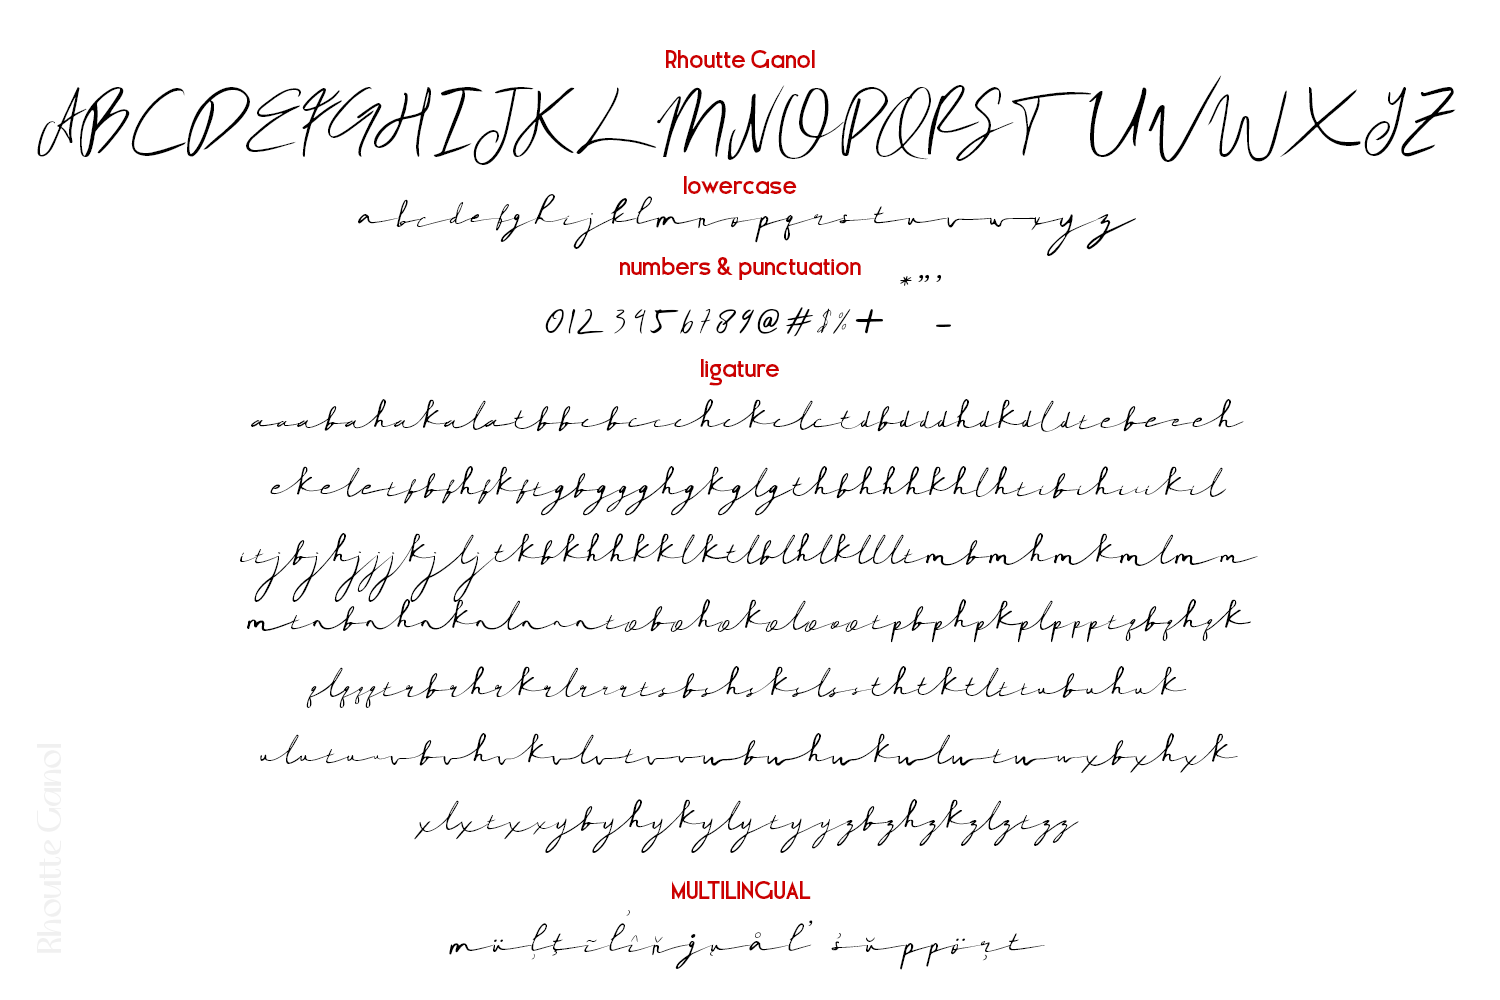 Rhoutte Ganol
ABCDEFGHIJKLMNOPQRSTUVWXYZ
lowercase
abcdefghijklmnopqrstuvwxyz
numbers & punctuation
*"'
0123456789@#$%+ -
ligature
aaabahakalatbbcbccchckclctdbdddhdkdldtebeeeh
ekeletfbfhfkftgbggghgkglgthbhhhkhlhtibihiiikil
itjbjhjjjkjljtkbkhkklktlblhlkllltmbmhmkmlmm
mtnbnhnknlnnntobohokoloootpbphpkplppptqbqhqk
qlqqqtrbrhrkrlrrrtsbshskslssthtktlttubuhuk
ulutuuvbvhvkvlvtvvwbwhwkwlwtwwxbxhxk
xlxtxxybyhykylytyyzbzhzkzlztzz
MULTILINGUAL
müļţĩĺîňġųåľ šŭppöŗt
Rhoutte Ganol